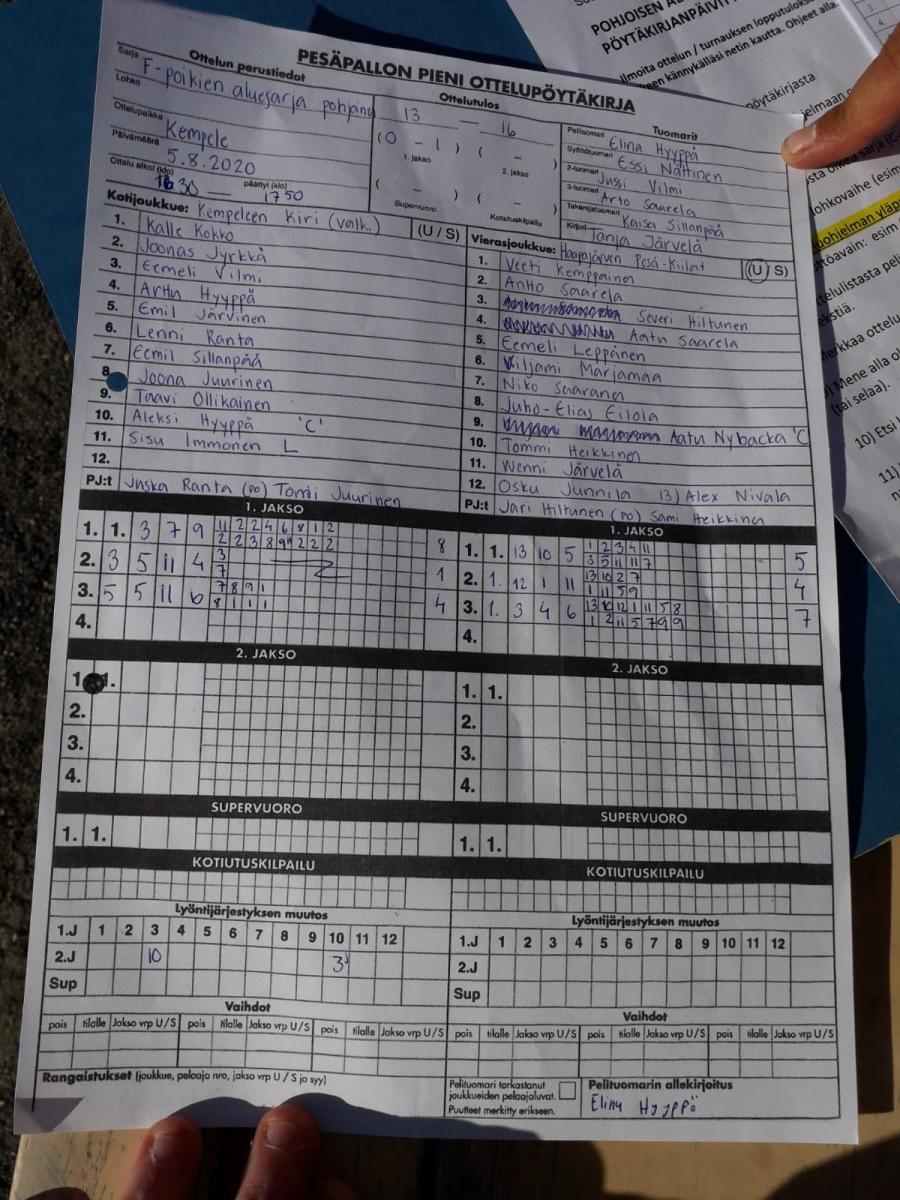 PESÄPALLON PIENI OTTELUPÖYTÄKIRJA
Ottelun perustiedot
Sarja F-poikien aluesarja pohjoinen
Lohko
Ottelupaikka Kempele
Päivämäärä 5.8.2020
Ottelu alkoi (klo) 1630 — päättyi (klo) 1750
Ottelutulos
13 — 16
(0 – 1) ( – )
1. jakso 2. jakso
( – ) ( – )
Supervuoro Kotiutuskilpailu
Tuomarit
Pelituomari Elina Hyyppä
Syöttötuomari Essi Nättinen
2-tuomari Jussi Vilmi
3-tuomari Arto Saarela
Takarajatuomari Kaisa Sillanpää
Kirjuri Tanja Järvelä
Kotijoukkue: Kempeleen Kiri (valk.) (U / S)
1. Kalle Kokko
2. Joonas Jyrkkä
3. Eemeli Vilmi
4. Arttu Hyyppä
5. Emil Järvinen
6. Lenni Ranta
7. Eemil Sillanpää
8. Joona Juurinen
9. Taavi Ollikainen
10. Aleksi Hyyppä 'C'
11. Sisu Immonen L
12.
PJ:t Juska Ranta (PO) Tomi Juurinen
Vierasjoukkue: Haapajärven Pesä-Kiilat (U / S)
1. Veeti Kemppainen
2. Antto Saarela
3. Severi Hiltunen
4. Aatu Saarela
5. Eemeli Leppänen
6. Viljami Marjamaa
7. Niko Saaranen
8. Juho-Elias Eilola
9. Aatu Nybacka 'C'
10. Tommi Heikkinen
11. Wenni Järvelä
12. Osku Junnila 13) Alex Nivala
PJ:t Jari Hiltunen (PO) Sami Heikkinen
1. JAKSO
1. 1. 3 7 9 11 2 2 4 6 8 1 2 8
2 2 3 8 9 2 2 2
2. 3 5 11 4 3 1
7
3. 5 5 11 6 7 8 9 1 4
8 1 1 1
4.
1. JAKSO
1. 1. 13 10 5 1 2 3 4 11 5
3 5 11 11 7
2. 1. 12 1 11 13 10 2 7 4
1 11 5 9
3. 1. 3 4 6 13 10 12 1 11 5 8 7
1 2 11 5 7 9 9
4.
2. JAKSO
1. 1.
2.
3.
4.
2. JAKSO
1. 1.
2.
3.
4.
SUPERVUORO
1. 1.
SUPERVUORO
1. 1.
KOTIUTUSKILPAILU
KOTIUTUSKILPAILU
Lyöntijärjestyksen muutos
1.J 1 2 3 4 5 6 7 8 9 10 11 12
2.J 10 3
Sup
Lyöntijärjestyksen muutos
1.J 1 2 3 4 5 6 7 8 9 10 11 12
2.J
Sup
Vaihdot
pois tilalle Jakso vrp U/S pois tilalle Jakso vrp U/S pois tilalle Jakso vrp U/S
Vaihdot
pois tilalle Jakso vrp U/S pois tilalle Jakso vrp U/S pois tilalle Jakso vrp U/S
Rangaistukset (joukkue, pelaaja nro, jakso vrp U / S ja syy)
Pelituomari tarkastanut
joukkueiden pelaajaluvat.
Puutteet merkitty erikseen.
Pelituomarin allekirjoitus
Elina Hyyppä
POHJOISEN
PÖYTÄKIRJANPÄIVIT
Ilmoita ottelun / turnauksen lopputulok
kännykälläsi netin kautta. Ohjeet alla.
pöytäkirjasta
lohkovaihe (esim
(tai selaa).
10) Etsi
11)